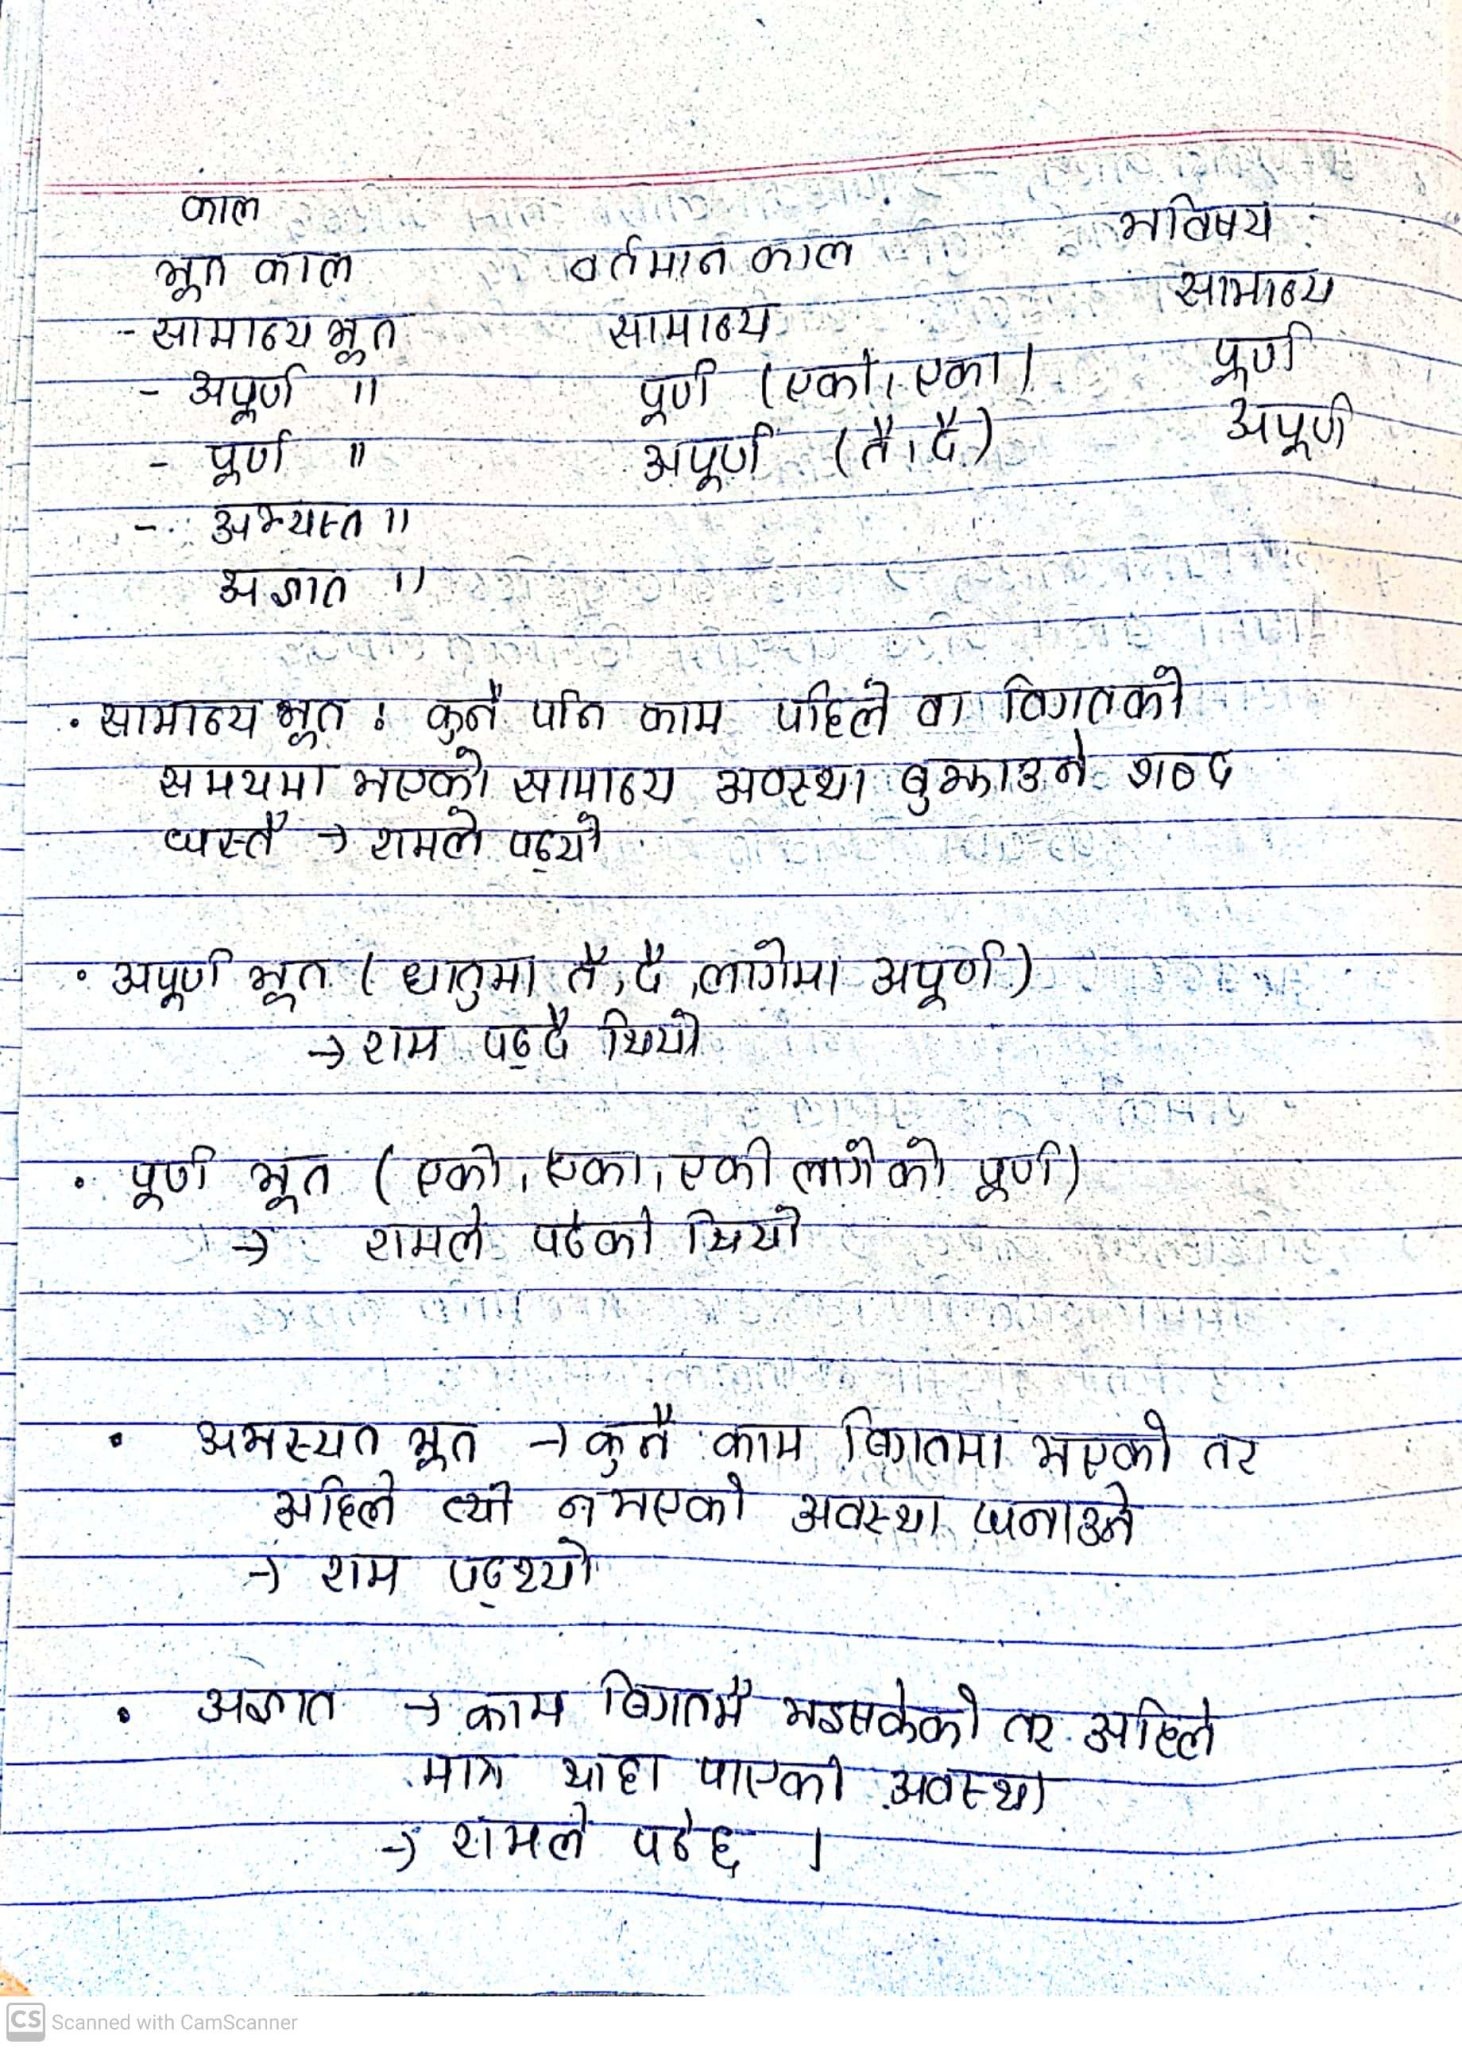 काल
भूत काल    वर्तमान काल    भविषय
- सामान्य भूत    सामान्य    सामान्य
- अपूर्ण "    पूर्ण (एको, एका)    पूर्ण
- पूर्ण "    अपूर्ण (तै, दै)    अपूर्ण
- अभ्यस्त "
अज्ञात "
• सामान्य भूत : कुनै पनि काम पहिले वा विगतको
समयमा भएको सामान्य अवस्था बुझाउने शब्द
जस्तै → रामले पढ्यो
• अपूर्ण भूत ( धातुमा तै, दै, लागेमा अपूर्ण )
→ राम पढ्दै थियो
• पूर्ण भूत ( एको, एका, एकी लागेको पूर्ण )
→ रामले पढेको थियो
• अभस्यत भूत → कुनै काम विगतमा भएको तर
अहिले त्यो नभएको अवस्था जनाउने
→ राम पढ्थ्यो
• अज्ञात → काम विगतमै भइसकेको तर अहिले
मात्र थाहा पाएको अवस्था
→ रामले पढेछ ।
CS Scanned with CamScanner